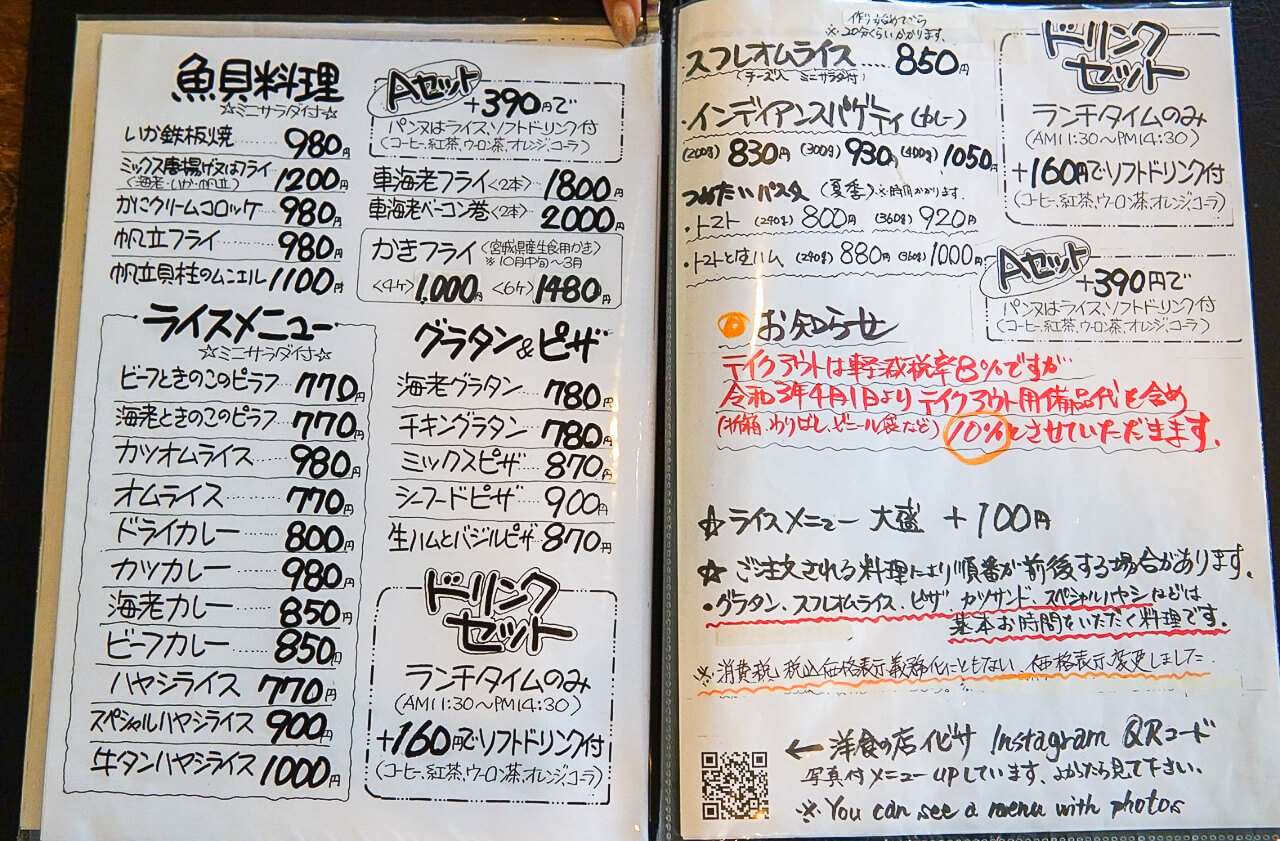 魚貝料理
☆ミニサラダ付☆
いか鉄板焼 980円
ミックス唐揚げ又はフライ 1200円
(海老・いか・帆立)
かにクリームコロッケ 980円
帆立フライ 980円
帆立貝柱のムニエル 1100円
Aセット
+390円で
パン又はライス、ソフトドリンク付
(コーヒー、紅茶、ウーロン茶、オレンジ、コーラ)
車海老フライ<2本> 1800円
車海老ベーコン巻<2本> 2000円
かきフライ <宮城県産生食用かき>
※10月中旬~3月
<4ケ> 1,000円 <6ケ> 1480円
ライスメニュー
☆ミニサラダ付☆
ビーフときのこのピラフ 770円
海老ときのこのピラフ 770円
カツオムライス 980円
オムライス 770円
ドライカレー 800円
カツカレー 980円
海老カレー 850円
ビーフカレー 850円
ハヤシライス 770円
スペシャルハヤシライス 900円
牛タンハヤシライス 1000円
グラタン&ピザ
海老グラタン 780円
チキングラタン 780円
ミックスピザ 870円
シーフードピザ 900円
生ハムとバジルピザ 870円
ドリンク
セット
ランチタイムのみ
(AM11:30~PM14:30)
+160円でソフトドリンク付
(コーヒー、紅茶、ウーロン茶、オレンジ、コーラ)
作り始めてから
※20分くらいかかります。
スフレオムライス ..... 850円
(チーズ入 ミニサラダ付)
・インディアンスパゲティ(カレー)
(200g) 830円 (300g) 930円 (400g) 1050円
つめたいパスタ (夏季) ※時間かかります。
・トマト (240g) 800円 (360g) 920円
・トマトと生ハム (240g) 880円 (360g) 1000円
ドリンク
セット
ランチタイムのみ
(AM11:30~PM14:30)
+160円でソフトドリンク付
(コーヒー、紅茶、ウーロン茶、オレンジ、コーラ)
Aセット
+390円で
パン又はライス、ソフトドリンク付
(コーヒー、紅茶、ウーロン茶、オレンジ、コーラ)
お知らせ
テイクアウトは軽減税率8%ですが
令和3年4月1日よりテイクアウト用備品代を含め
(折箱、わりばし、ビニール袋など) 10%とさせていただきます。
☆ライスメニュー 大盛 +100円
☆ご注文される料理により順番が前後する場合があります。
・グラタン、スフレオムライス、ピザ、カツサンド、スペシャルハヤシなどは
基本お時間をいただく料理です。
※消費税、税込価格表示義務化にともない、価格表示変更しました
← 洋食の店イビサ Instagram QRコード
写真付メニューupしています、よかたら見て下さい。
※You can see a menu with photos